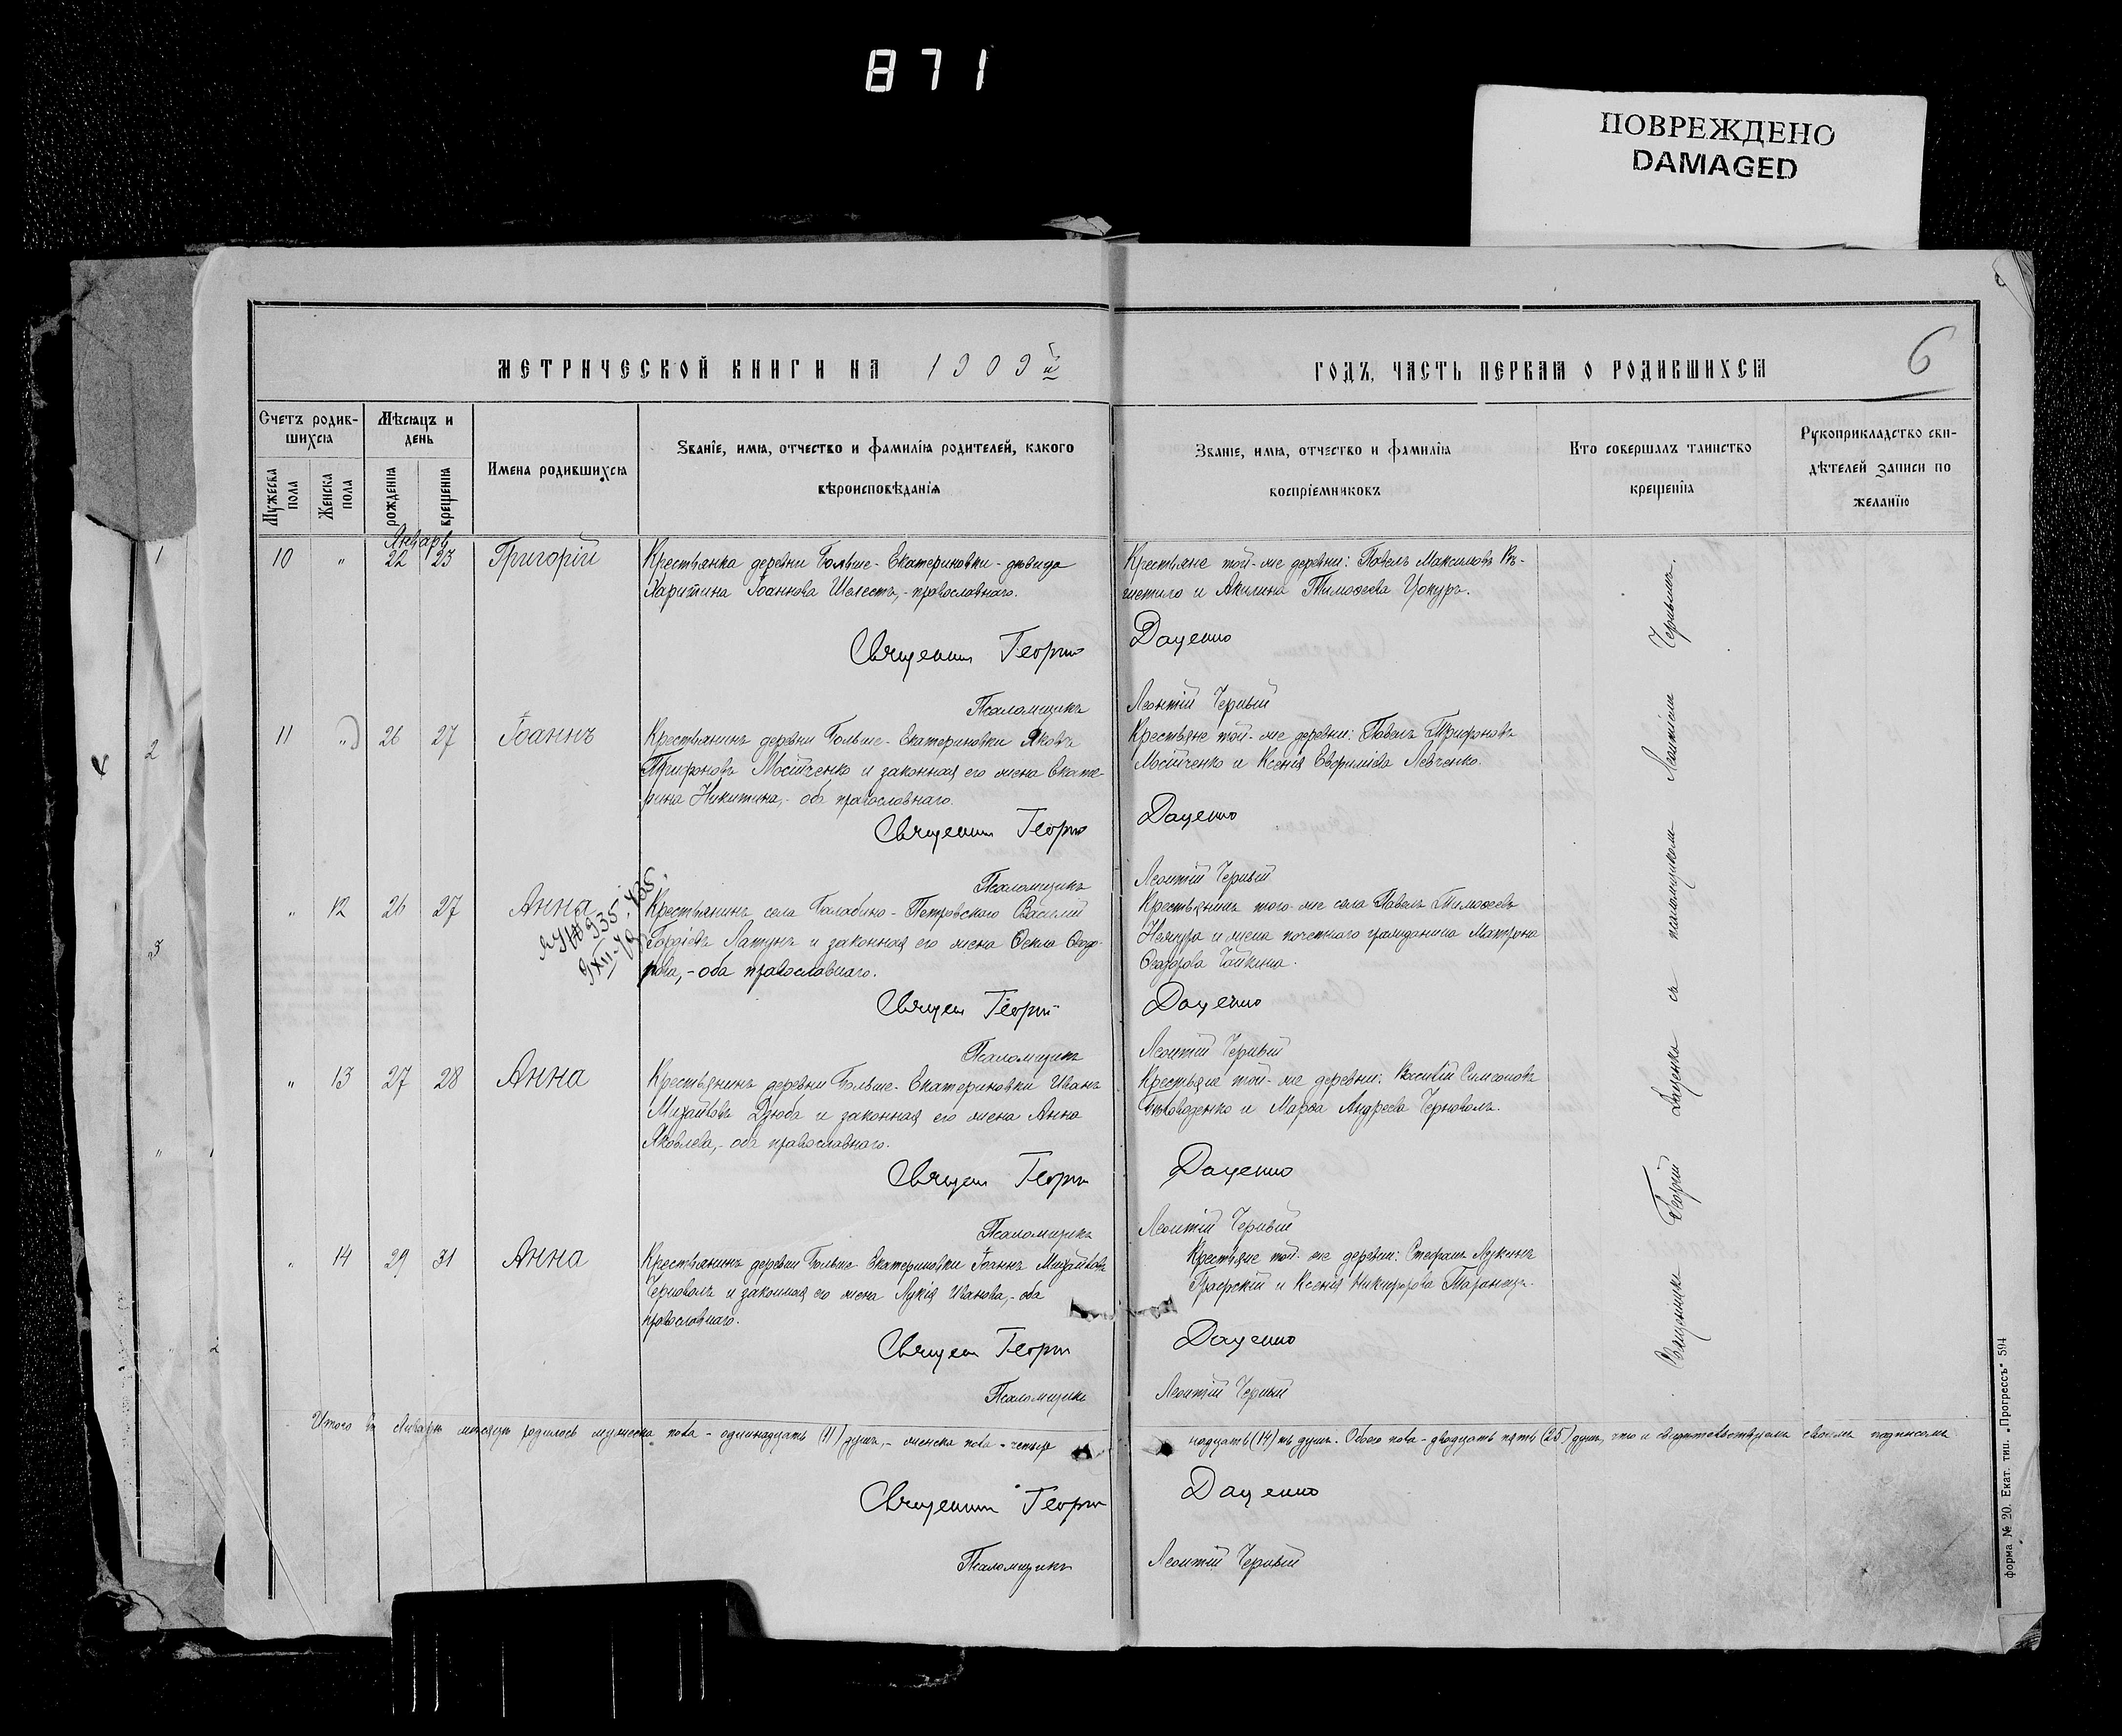 871
ПОВРЕЖДЕНО
DAMAGED
6
МЕТРИЧЕСКОЙ КНИГИ НА 1909й ГОДЪ, ЧАСТЬ ПЕРВАЯ О РОДИВШИХСЯ
Счетъ родив-
шихся
Мужеска пола
Женска пола
Мѣсяцъ и
день
рожденія
крещенія
Имена родившихся
Званіе, имя, отчество и фамилія родителей, какого
вѣроисповѣданія
Званіе, имя, отчество и фамилія
воспріемниковъ
Кто совершалъ таинство
крещенія
Рукоприкладство сви-
дѣтелей записи по
желанію
Январь
10 " 22 23 Григорій
Крестьянка деревни Больше-Екатериновки-дѣвица
Харитина Іоаннова Шелестъ,-православнаго.
Крестьяне той-же деревни: Павелъ Максимовъ
и Акилина Тимофеева Цокуръ.
Священникъ Георгій Даценко
Псаломщикъ Леонтій Черный
11 " 26 27 Іоаннъ
Крестьянинъ деревни Больше-Екатериновки Яковъ
Трифоновъ Мойченко и законная его жена Екате-
рина Никитина,-оба православнаго.
Крестьяне той-же деревни: Павелъ Трифоновъ
Мойченко и Ксенія Евфиміева Левченко.
Священникъ Георгій Даценко
Псаломщикъ Леонтій Черный
" 12 26 27 Анна
Крестьянинъ села Балабино-Петровскаго Василій
Гордіевъ Латунъ и законная его жена Фекла Федо-
рова,-оба православнаго.
Крестьянинъ того-же села Павелъ Тимофеевъ
и жена почетнаго гражданина Матрона
Феодорова
Священ Георгій Даценко
Псаломщикъ Леонтій Черный
" 13 27 28 Анна
Крестьянинъ деревни Больше-Екатериновки Иванъ
Михайловъ Дзюба и законная его жена Анна
Яковлева,-оба православнаго.
Крестьяне той-же деревни: Василій Симеоновъ
и Марфа Андреева Черноволъ.
Священ Георгій Даценко
Псаломщикъ Леонтій Черный
" 14 29 31 Анна
Крестьянинъ деревни Больше-Екатериновки Іоаннъ Михайловъ
Черноволъ и законная его жена Лукія Иванова,-оба
православнаго.
Крестьяне той-же деревни: Стефанъ Лукинъ
Графскій и Ксенія Никифорова Таранецъ.
Священ Георгій Даценко
Псаломщикъ Леонтій Черный
Священникъ Георгій Даценко съ псаломщикомъ Леонтіемъ Чернымъ.
Итого въ Январѣ мѣсяцѣ родилось мужеска пола - одиннадцать (11) душъ,- женска пола - четыр
надцать (14) душъ. Обоего пола - двадцать пять (25) душъ, что и свидѣтельствуемъ своимъ подписомъ
Священникъ Георгій Даценко
Псаломщикъ Леонтій Черный
форма № 20. Екат. тип. „Прогрессъ" 594
1
2